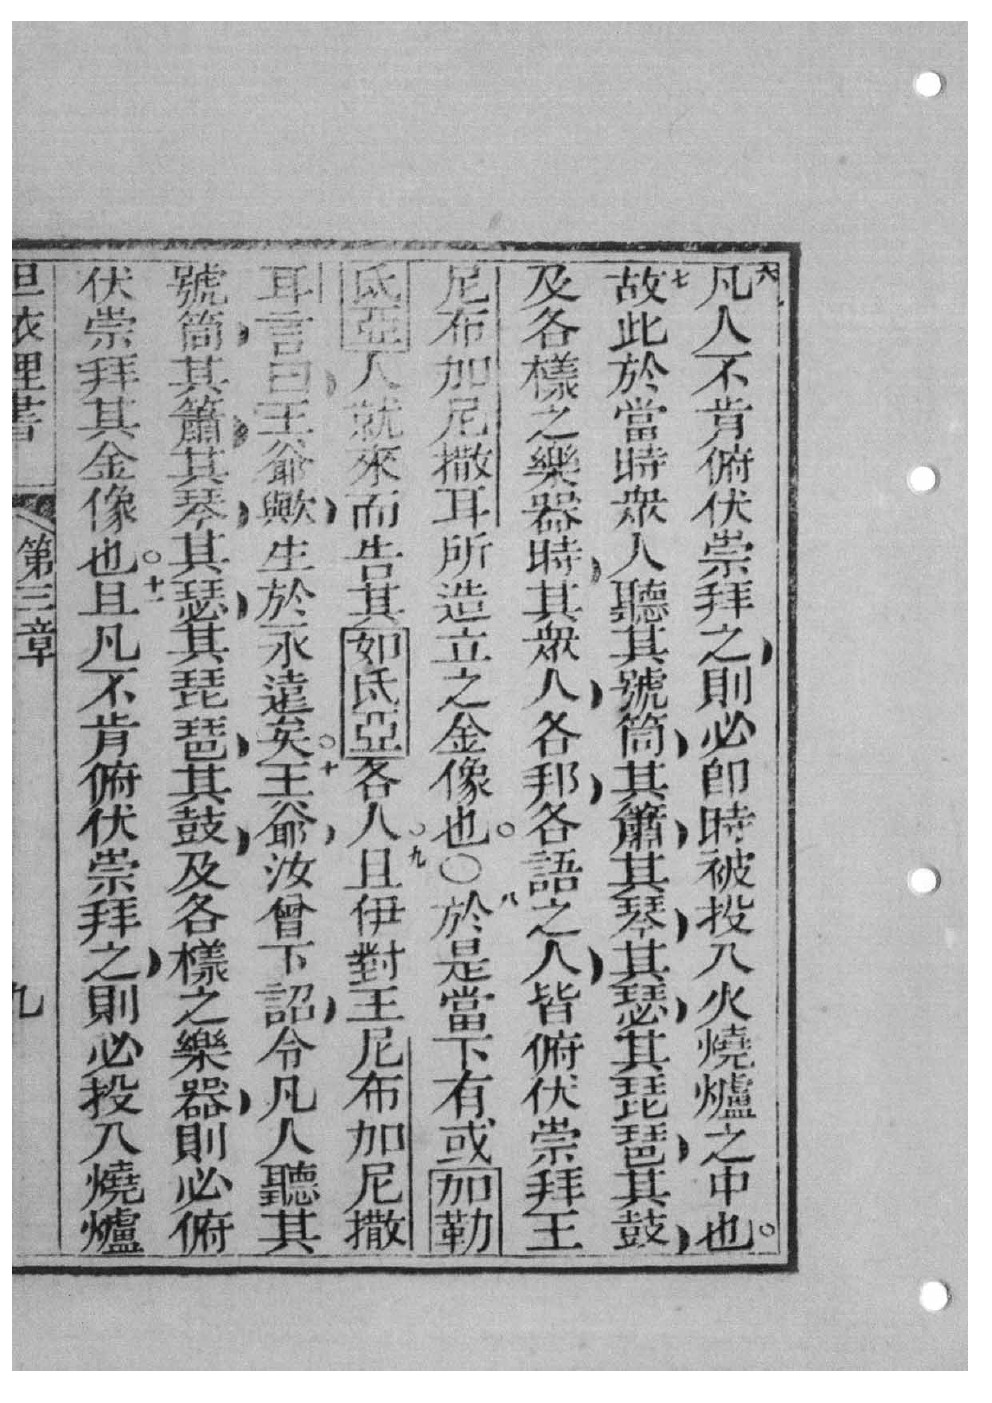 六凡人不肯俯伏崇拜之則必即時被投入火燒爐之中也。
七故此於當時眾人聽其號筒其簫其琴其瑟其琵琶其鼓
及各樣之樂器時其眾人各邦各語之人皆俯伏崇拜王
尼布加尼撒耳所造立之金像也。○八於是當下有或加勒
氐亞人就來而告其如氐亞各人。九且伊對王尼布加尼撒
耳言曰王爺歟生於永遠矣。十王爺汝曾下詔令凡人聽其
號筒其簫其琴其瑟其琵琶其鼓及各樣之樂器則必俯
伏崇拜其金像也。十一且凡不肯俯伏崇拜之則必投入燒爐
但依理書 第三章 九